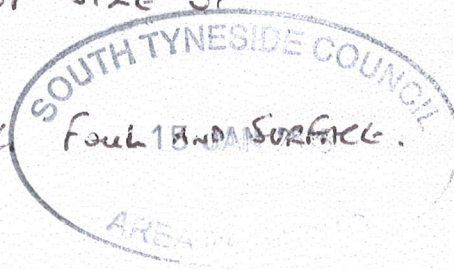 SIZE
SOUTH TYNESIDE COUNCIL
FOUL AND SURFACE.
15 JAN
AREA